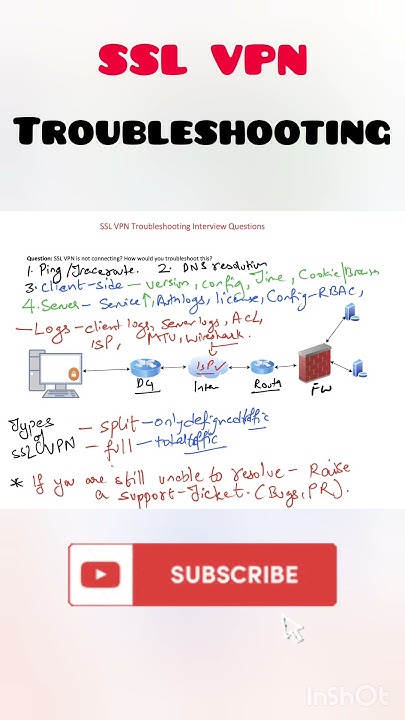 SSL VPN
TROUBLESHOOTING
SSL VPN Troubleshooting Interview Questions
Question: SSL VPN is not connecting? How would you troubleshoot this?
1. Ping/Traceroute. 2. DNS resolution
3. Client-side - version, config, Time, Cookie/Browser
4. Server - Service↑, Authlogs, license, Config-RBAC,
- Logs - client logs, Server logs, ACL,
ISP, MTU, Wireshark.
ISP ✓
DG Inter Route FW
Types of SSL VPN
- split - only defined traffic
- full - total traffic
* If you are still unable to resolve - Raise
a support-Ticket. (Bugs, PR).
SUBSCRIBE
InShOt